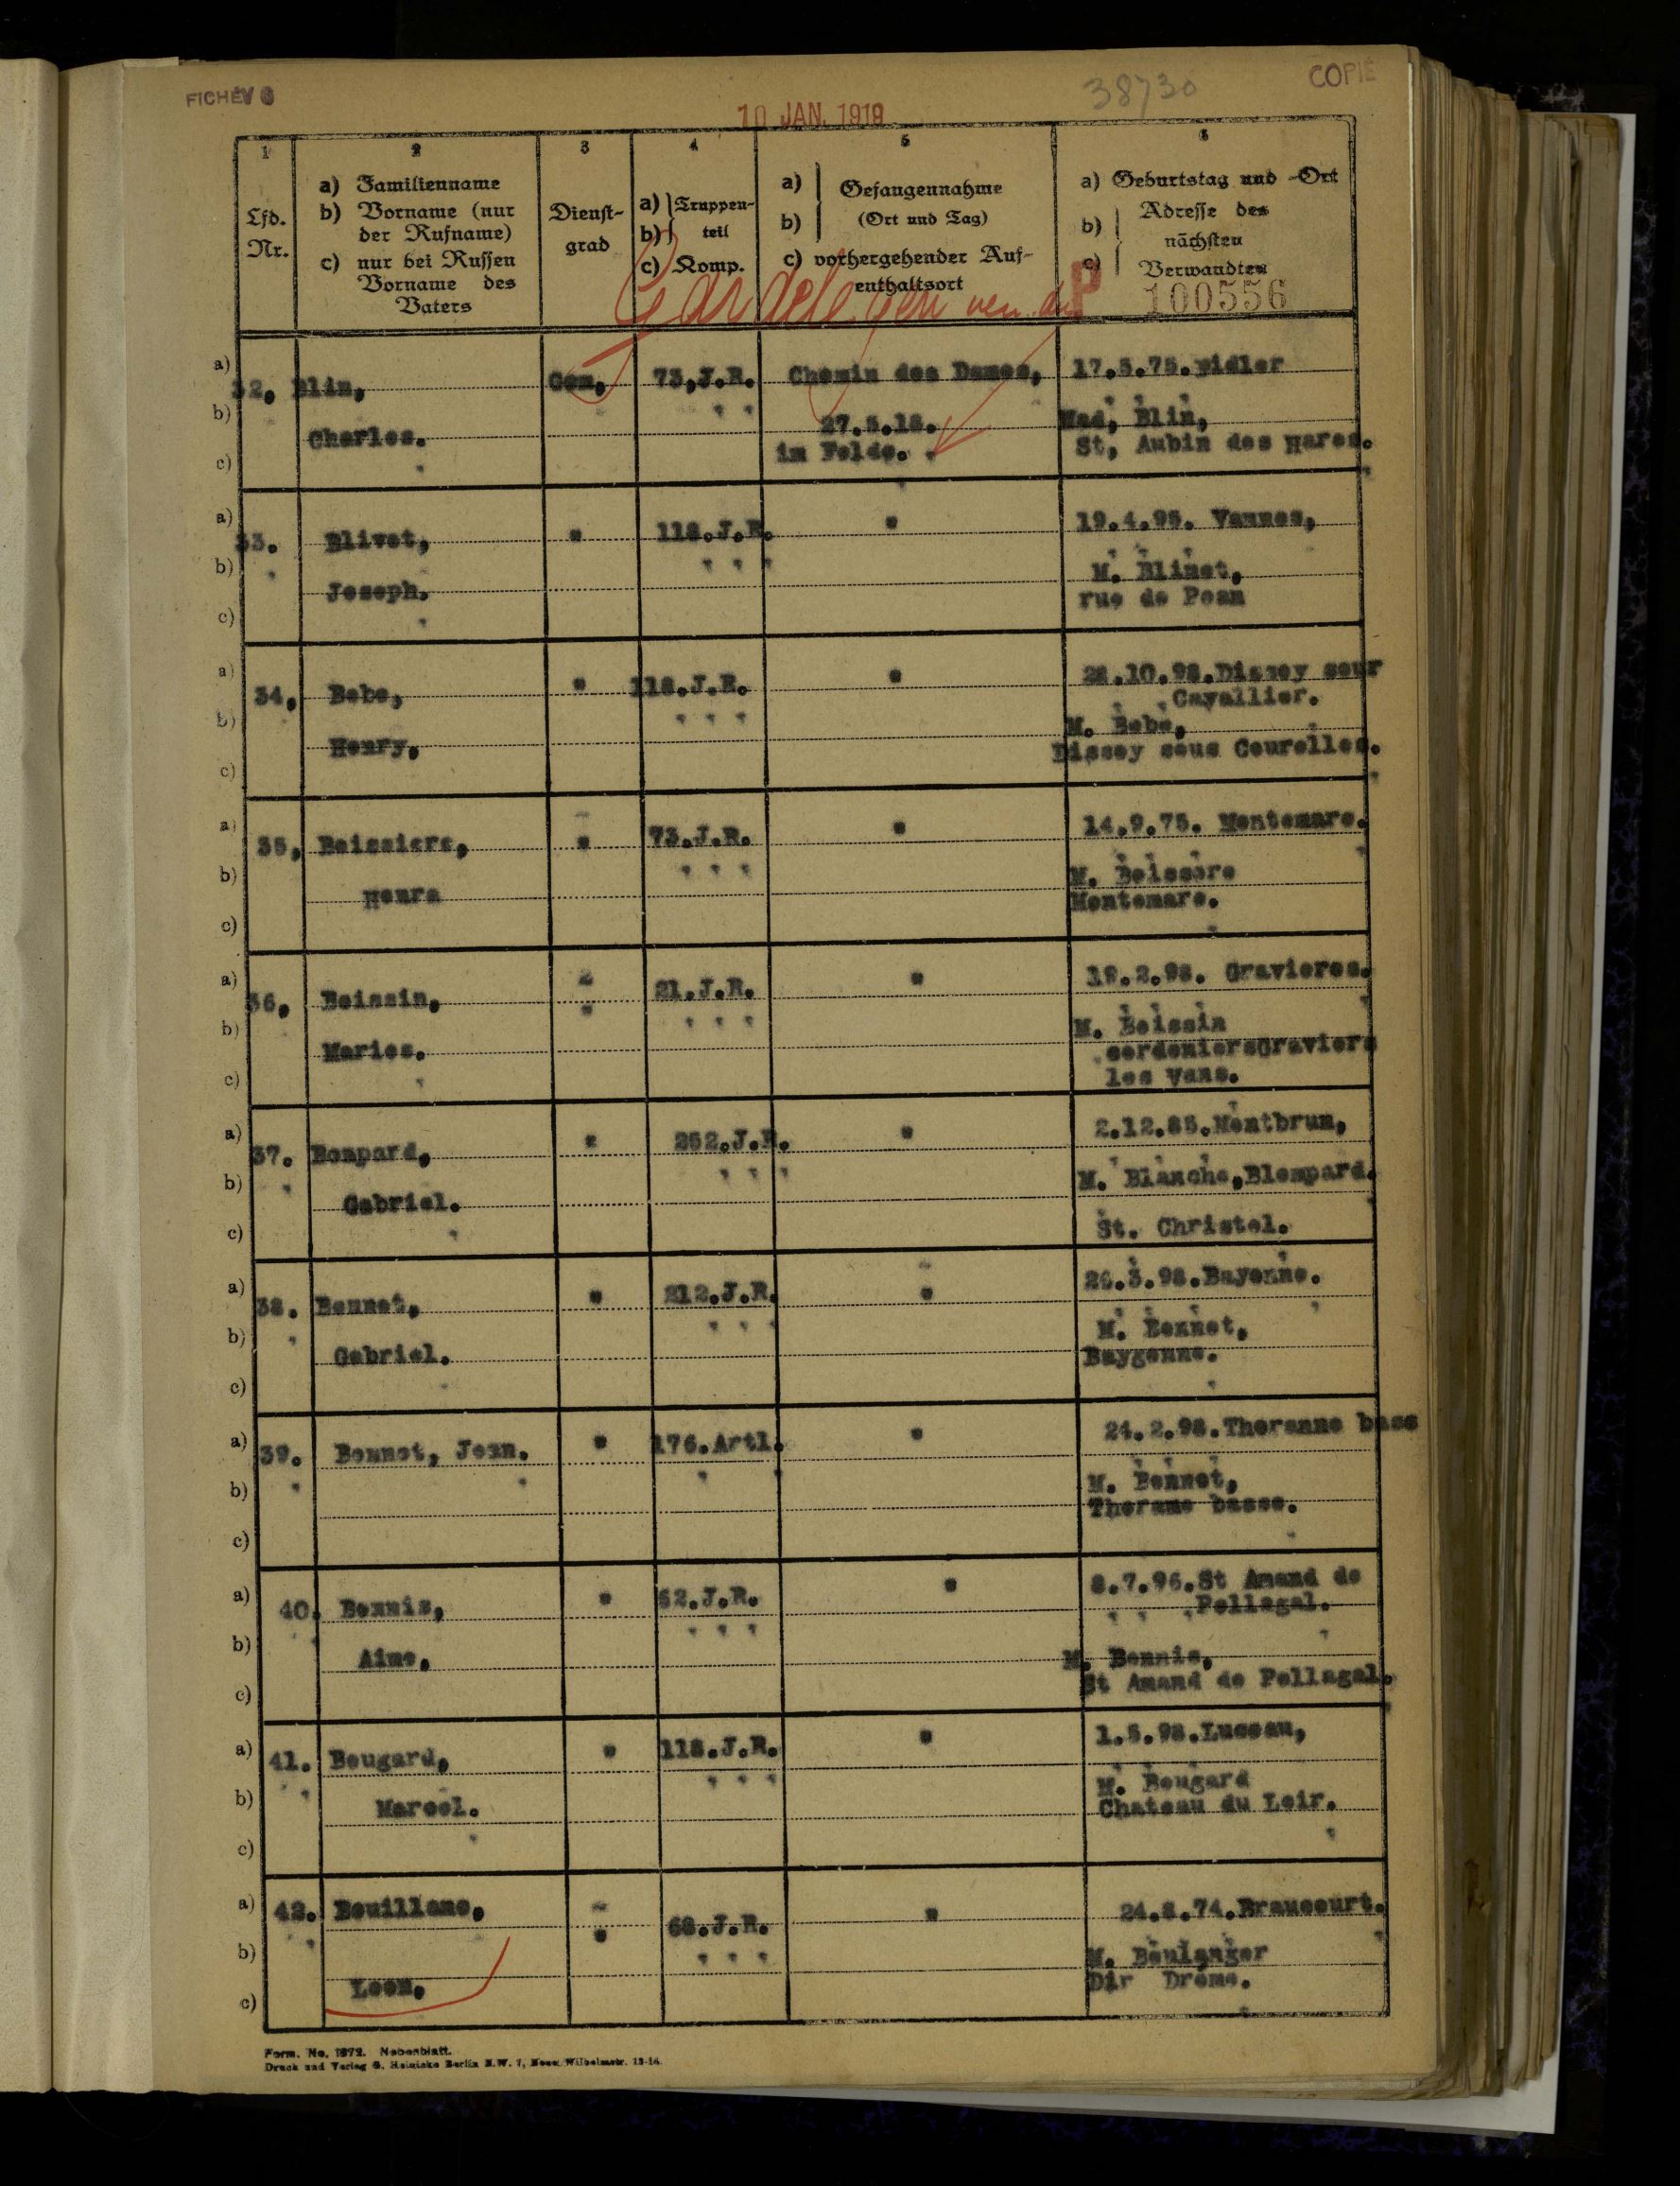 FICHÉV 6
10 JAN. 1919
38730
COPIE
1
2
3
4
5
6
Lfd.
Nr.
a) Familienname
b) Vorname (nur
der Rufname)
c) nur bei Russen
Vorname des
Vaters
Dienst-
grad
a) Truppen-
b) teil
c) Komp.
a)
b)
Gefangennahme
(Ort und Tag)
c) vorhergehender Auf-
enthaltsort
a) Geburtstag und -Ort
b)
c)
Adresse des
nächsten
Verwandten
Gardelegen
P 100556
a) 32. Blin, Gem, 73,J.R. Chemin des Dames, 17.5.75.
b) 27.5.18. Mad, Blin,
Charles. im Felde. St, Aubin des
c)
a) 33. Blivet, " 118.J.R. " 19.4.95. Vannes,
b) M. Blinet,
Joseph. rue de
c)
a) 34, Bobo, " 118.J.R. " 28.10.98.Dissey sour
Cavallier.
b) M. Bobo,
Henry, Dissey sous Courelles.
c)
a) 35, Boissiere, " 73.J.R. " 14.9.75. Montemare.
b) M. Boissore
Henra Montemare.
c)
a) 36, Boissin, " 21.J.R. " 19.2.98. Gravieres.
b) M. Boissin
Maries. Graviers
c) les Vans.
a) 37. Bompard, " 252.J.R. " 2.12.85.Montbrun,
b) M. Blanche,Blompard.
Gabriel.
c) St. Christol.
a) 38. Bonnet, " 212.J.R. " .3.98.Bayonne.
b) M. Bonnet,
Gabriel. Baygonne.
c)
a) 39. Bonnot, Jean. " 176.Artl. " 24.2.98.Thoranne basse
b) M. Bonnot,
Thorame basse.
c)
a) 40. Bonnis, " 62.J.R. " 8.7.96.St Amand de
Pellagal.
b) Aime, M. Bonnis,
St Amand de Pellagal.
c)
a) 41. Bougard, " 118.J.R. " 1.5.98.Luceau,
b) M. Bougard
Marcel. Chateau du Loir.
c)
a) 42. Bouillane, " 68.J.R. " 24.8.74.Braucourt.
b) M. Boulanger
Leon. Dir Drôme.
c)
Form. No. 1872. Nebenblatt.
Druck und Verlag G. Heinicke Berlin N.W. 7, Neue Wilhelmstr. 13-14.